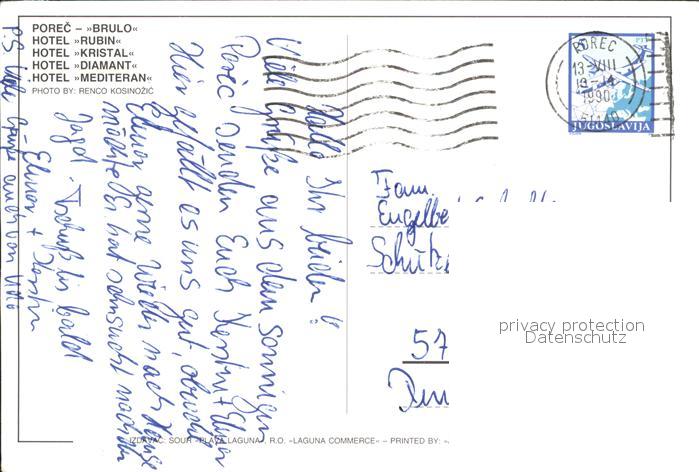 POREČ – »BRULO«
HOTEL »RUBIN«
HOTEL »KRISTAL«
HOTEL »DIAMANT«
HOTEL »MEDITERAN«
PHOTO BY: RENCO KOSINOŽIĆ
POREČ
13-VIII
1990
51440
JUGOSLAVIJA
Hallo Ihr beiden!
Viele Grüße aus dem sonnigen
Poreč senden Euch Kerstin + Elmar
Hier gefällt es uns gut, obwohl
Elmar gerne wieder nach Hause
möchte. Er hat Sehnsucht nach der
Jagd. Tschüß bis bald
– Elmar + Kerstin
P.S. Viele Grüße auch von
Fam.
Engelbe
Schütz
57
privacy protection
Datenschutz
IZDAVAČ: SOUR »PLAVA LAGUNA«, R.O. »LAGUNA COMMERCE« – PRINTED BY: